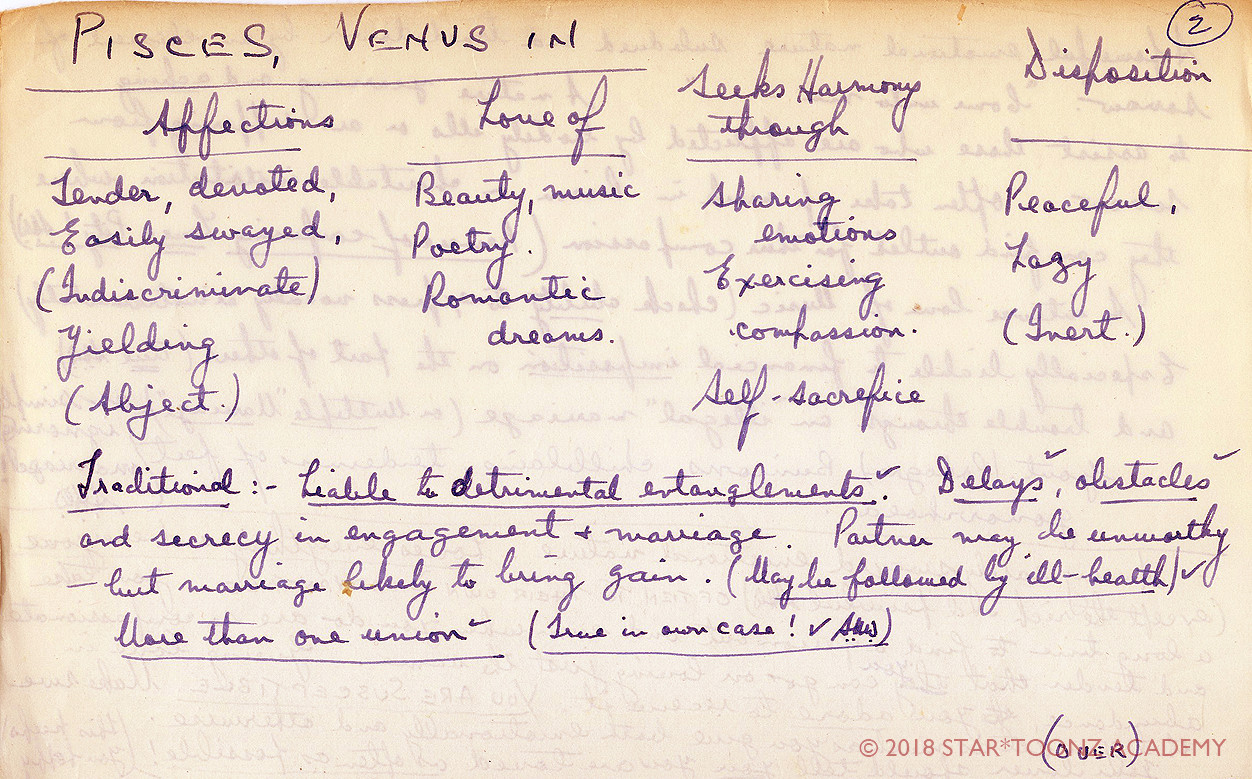 PISCES, VENUS IN
2
Affections
Tender, devoted,
Easily swayed,
(Indiscriminate)
Yielding
(Abject.)
Love of
Beauty, music
Poetry.
Romantic
dreams.
Seeks Harmony
through
Sharing
emotions
Exercising
compassion.
Self-sacrefice
Disposition
Peaceful,
Lazy
(Inert.)
Traditional :- Liable to detrimental entanglements ✓. Delays ✓, obstacles ✓
and secrecy in engagement + marriage. Partner may be unworthy
- but marriage likely to bring gain. (May be followed by ill-health) ✓
More than one union ✓ (True in own case! ✓)
(OVER)
© 2018 STAR*TOONZ ACADEMY